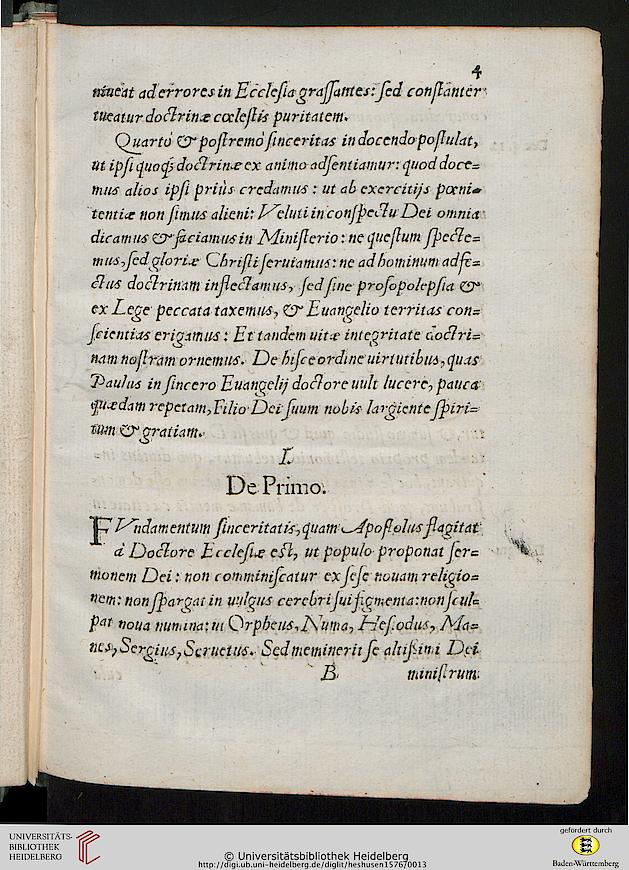 4
niueat ad errores in Ecclesia grassantes: sed constanter
tueatur doctrinæ cœlestis puritatem.
Quartò & postremò sinceritas in docendo postulat,
ut ipsi quoq; doctrinæ ex animo adsentiamur: quod doce=
mus alios ipsi priùs credamus: ut ab exercitijs pœni=
tentiæ non simus alieni: Veluti in conspectu Dei omnia
dicamus & faciamus in Ministerio: ne questum specte=
mus, sed gloriæ Christi seruiamus: ne ad hominum adfe=
ctus doctrinam inflectamus, sed sine prosopolepsia &
ex Lege peccata taxemus, & Euangelio territas con=
scientias erigamus: Et tandem uitæ integritate doctri=
nam nostram ornemus. De hisce ordine uirtutibus, quas
Paulus in sincero Euangelij doctore uult lucere, pauca
quædam repetam, Filio Dei suum nobis largiente spiri=
tum & gratiam.
I.
De Primo.
FVndamentum sinceritatis, quam Apostolus flagitat
à Doctore Ecclesiæ est, ut populo proponat ser=
monem Dei: non comminiscatur ex sese nouam religio=
nem: non spargat in uulgus cerebri sui figmenta: non scul=
pat noua numina: ut Orpheus, Numa, Hesiodus, Ma=
nes, Sergius, Seruetus. Sed meminerit se altissimi Dei
B ministrum
UNIVERSITÄTS-
BIBLIOTHEK
HEIDELBERG
© Universitätsbibliothek Heidelberg
http://digi.ub.uni-heidelberg.de/diglit/heshusen1576/0013
gefördert durch
Baden-Württemberg